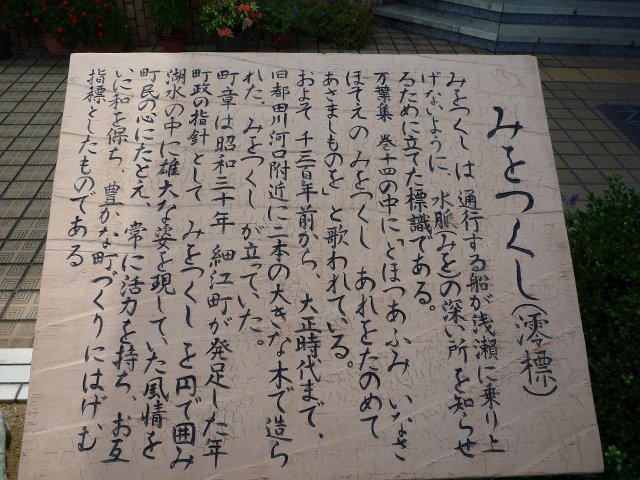 みをつくし(澪標)
みをつくしは 通行する船が浅瀬に乗り上
げないように、水脈(みを)の深い所を知らせ
るために立てた標識である。
万葉集 巻十四の中に「とほつあふみ いなさ
ほそえの みをつくし あれをたのめて
あさましものを」と歌われている。
およそ 千三百年前から、大正時代まで、
旧都田川河口附近に二本の大きな木で造ら
れた みをつくし が立っていた。
町章は昭和三十年 細江町が発足した年
町政の指針として みをつくし を円で囲み
湖水の中に雄大な姿を現していた風情を
町民の心にたとえ、常に活力を持ち、お互
いに和を保ち、豊かな町づくりにはげむ
指標としたものである